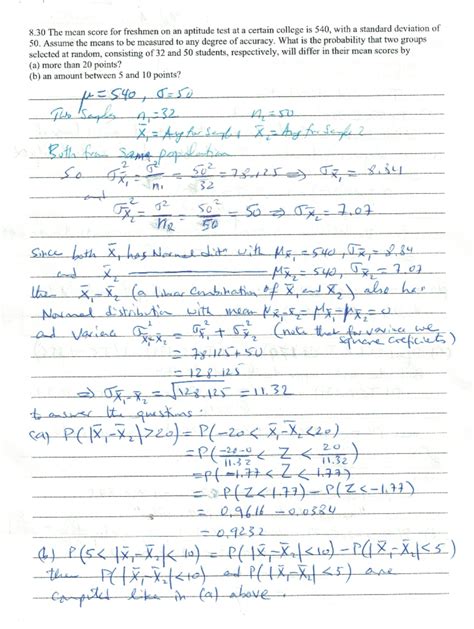 8.30 The mean score for freshmen on an aptitude test at a certain college is 540, with a standard deviation of
50. Assume the means to be measured to any degree of accuracy. What is the probability that two groups
selected at random, consisting of 32 and 50 students, respectively, will differ in their mean scores by
(a) more than 20 points?
(b) an amount between 5 and 10 points?
μ = 540, σ = 50
Two Samples n₁ = 32 n₂ = 50
X̄₁ = Avg for Sample 1 X̄₂ = Avg for Sample 2
Both from same population
So σ²X̄₁ = σ²/n₁ = 50²/32 = 78.125 ⇒ σX̄₁ = 8.84
and σ²X̄₂ = σ²/n₂ = 50²/50 = 50 ⇒ σX̄₂ = 7.07
Since both X̄₁ has Normal distn with μX̄₁ = 540, σX̄₁ = 8.84
and X̄₂ ———— μX̄₂ = 540, σX̄₂ = 7.07
then X̄₁-X̄₂ (a linear combination of X̄₁ and X̄₂) also has
Normal distribution with mean μX̄₁-X̄₂ = μX̄₁ - μX̄₂ = 0
and Variance σ²X̄₁-X̄₂ = σ²X̄₁ + σ²X̄₂ (note that for variance we
square coeficients)
= 78.125 + 50
= 128.125
⇒ σX̄₁-X̄₂ = √128.125 = 11.32
to answer the questions:
(a) P(|X̄₁-X̄₂|>20) = P(-20 < X̄₁-X̄₂ < 20)
= P(-20-0/11.32 < Z < 20/11.32)
= P(-1.77 < Z < 1.77)
= P(Z < 1.77) - P(Z < -1.77)
= 0.9616 - 0.0384
= 0.9232
(b) P(5 < |X̄₁-X̄₂| < 10) = P(|X̄₁-X̄₂| < 10) - P(|X̄₁-X̄₂| < 5)
then P(|X̄₁-X̄₂| < 10) and P(|X̄₁-X̄₂| < 5) are
computed like in (a) above.